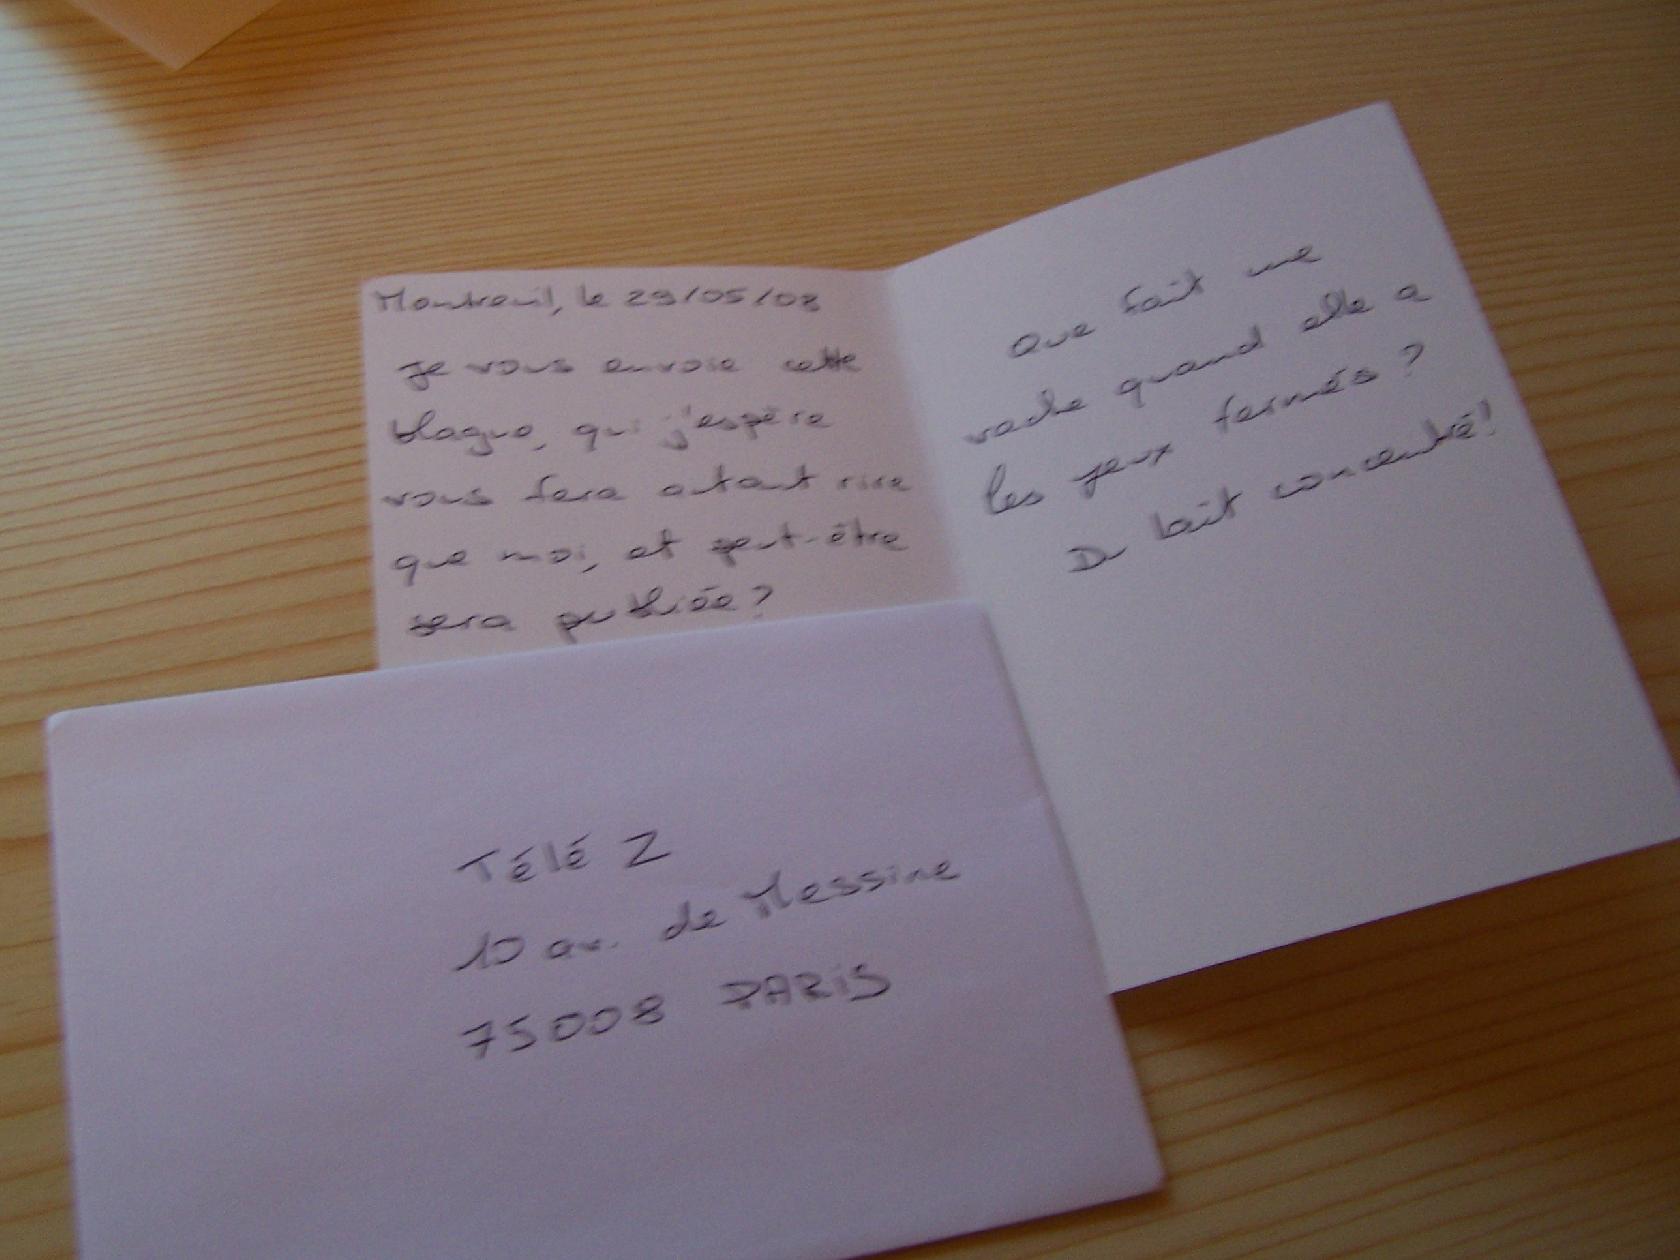 Montreuil, le 29/05/08
Je vous envoie cette
blague, qui j'espère
vous fera autant rire
que moi, et peut-être
sera publiée ?
Que fait une
vache quand elle a
les yeux fermés ?
Du lait concentré !
Télé Z
10 av. de Messine
75008 PARIS